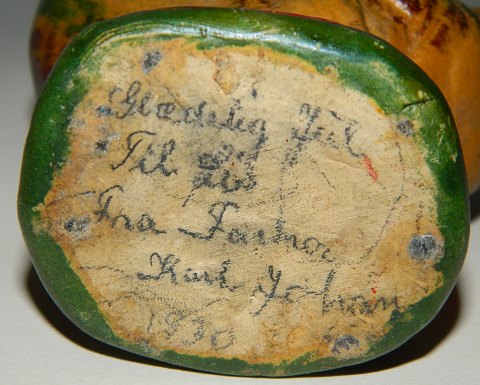 Glædelig Jul
Til
Fra Farmor
Karl Johan
1930